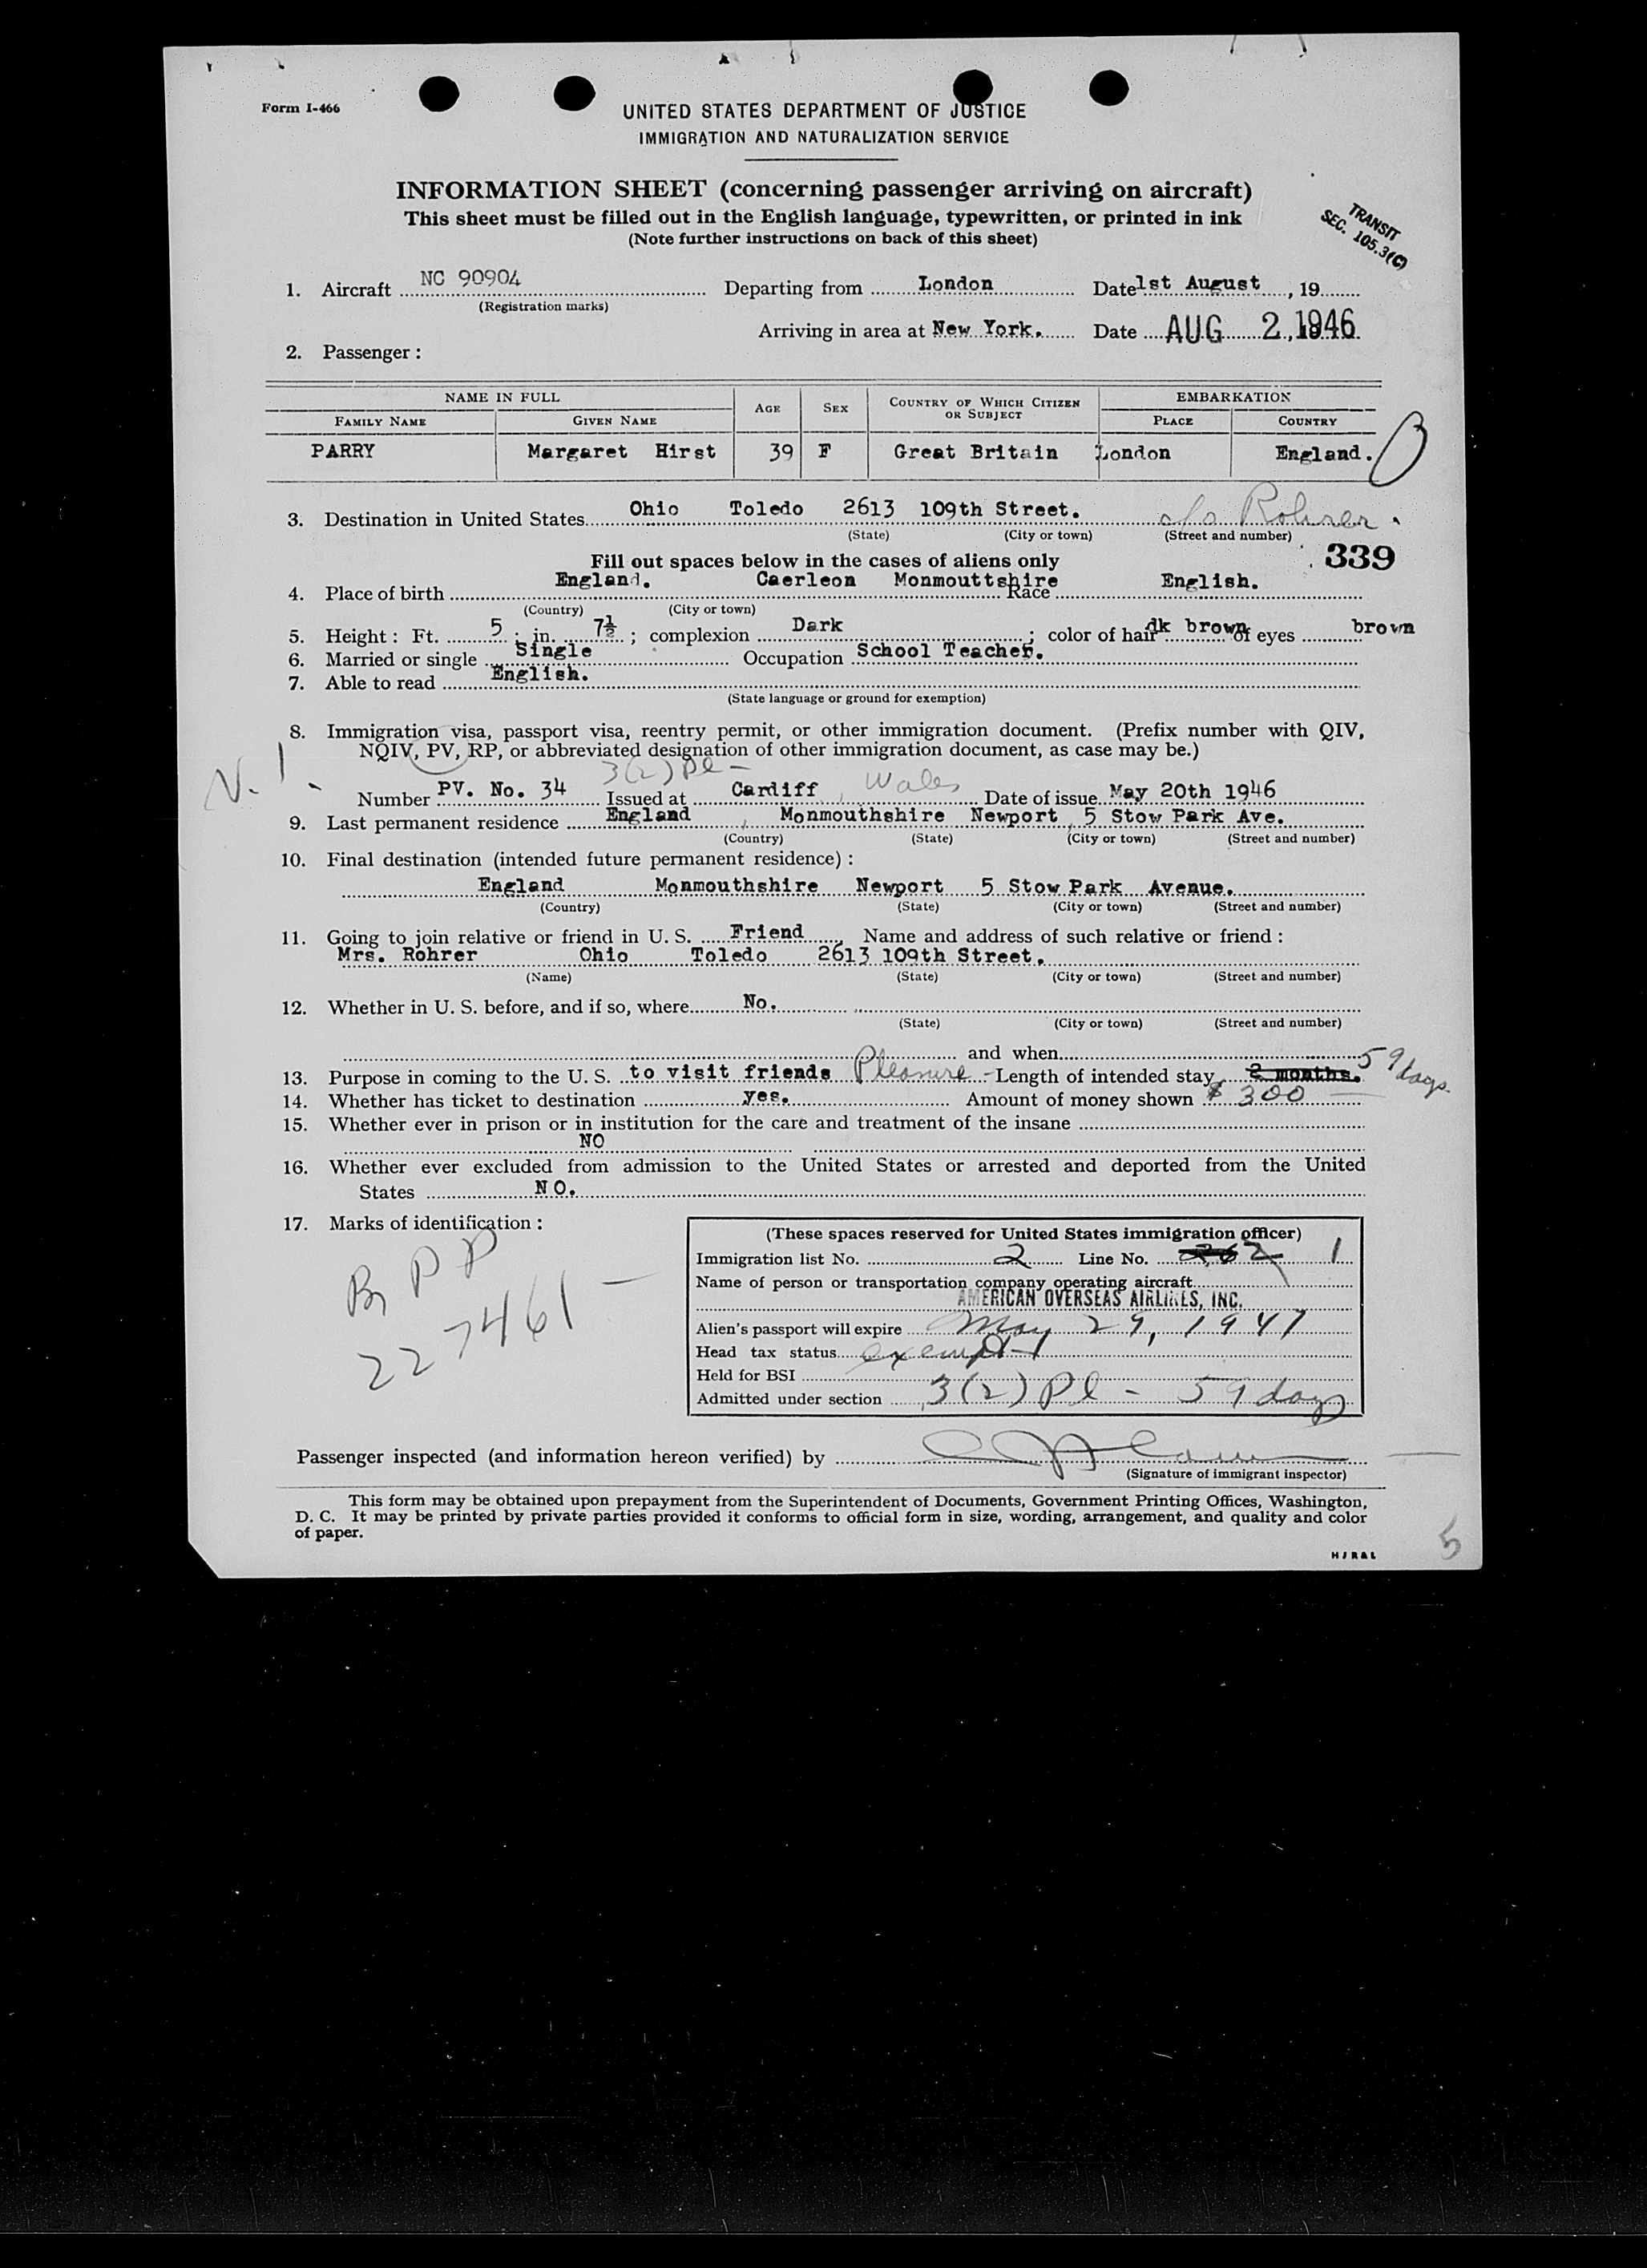 Form I-466
UNITED STATES DEPARTMENT OF JUSTICE
IMMIGRATION AND NATURALIZATION SERVICE
INFORMATION SHEET (concerning passenger arriving on aircraft)
This sheet must be filled out in the English language, typewritten, or printed in ink
(Note further instructions on back of this sheet)
TRANSIT
SEC. 105.3(C)
1. Aircraft NC 90904 Departing from London Date 1st August, 19
(Registration marks)
Arriving in area at New York. Date AUG 2, 1946
2. Passenger:
NAME IN FULL AGE SEX COUNTRY OF WHICH CITIZEN OR SUBJECT EMBARKATION
FAMILY NAME GIVEN NAME PLACE COUNTRY
PARRY Margaret Hirst 39 F Great Britain London England.
3. Destination in United States Ohio Toledo 2613 109th Street. c/o Rohrer.
(State) (City or town) (Street and number)
Fill out spaces below in the cases of aliens only 339
4. Place of birth England. Caerleon Monmouttshire Race English.
(Country) (City or town)
5. Height: Ft. 5; in. 7½; complexion Dark; color of hair dk brown of eyes brown
6. Married or single Single Occupation School Teacher.
7. Able to read English.
(State language or ground for exemption)
8. Immigration visa, passport visa, reentry permit, or other immigration document. (Prefix number with QIV,
NQIV, PV, RP, or abbreviated designation of other immigration document, as case may be.)
3(2) Pl -
Number PV. No. 34 Issued at Cardiff, Wales Date of issue May 20th 1946
9. Last permanent residence England, Monmouthshire Newport, 5 Stow Park Ave.
(Country) (State) (City or town) (Street and number)
10. Final destination (intended future permanent residence):
England Monmouthshire Newport 5 Stow Park Avenue.
(Country) (State) (City or town) (Street and number)
11. Going to join relative or friend in U. S. Friend Name and address of such relative or friend:
Mrs. Rohrer Ohio Toledo 2613 109th Street.
(Name) (State) (City or town) (Street and number)
12. Whether in U. S. before, and if so, where No.
(State) (City or town) (Street and number)
and when
13. Purpose in coming to the U. S. to visit friends Pleasure - Length of intended stay 2 months. 59 days.
14. Whether has ticket to destination yes. Amount of money shown $ 300
15. Whether ever in prison or in institution for the care and treatment of the insane
NO
16. Whether ever excluded from admission to the United States or arrested and deported from the United
States NO.
17. Marks of identification:
PP
227461 -
(These spaces reserved for United States immigration officer)
Immigration list No. 2 Line No. 1
Name of person or transportation company operating aircraft
AMERICAN OVERSEAS AIRLINES, INC.
Alien's passport will expire May 29, 1947
Head tax status exempt
Held for BSI
Admitted under section 3(2) Pl - 59 days
Passenger inspected (and information hereon verified) by
(Signature of immigrant inspector)
This form may be obtained upon prepayment from the Superintendent of Documents, Government Printing Offices, Washington,
D. C. It may be printed by private parties provided it conforms to official form in size, wording, arrangement, and quality and color
of paper.
HJR&L
5